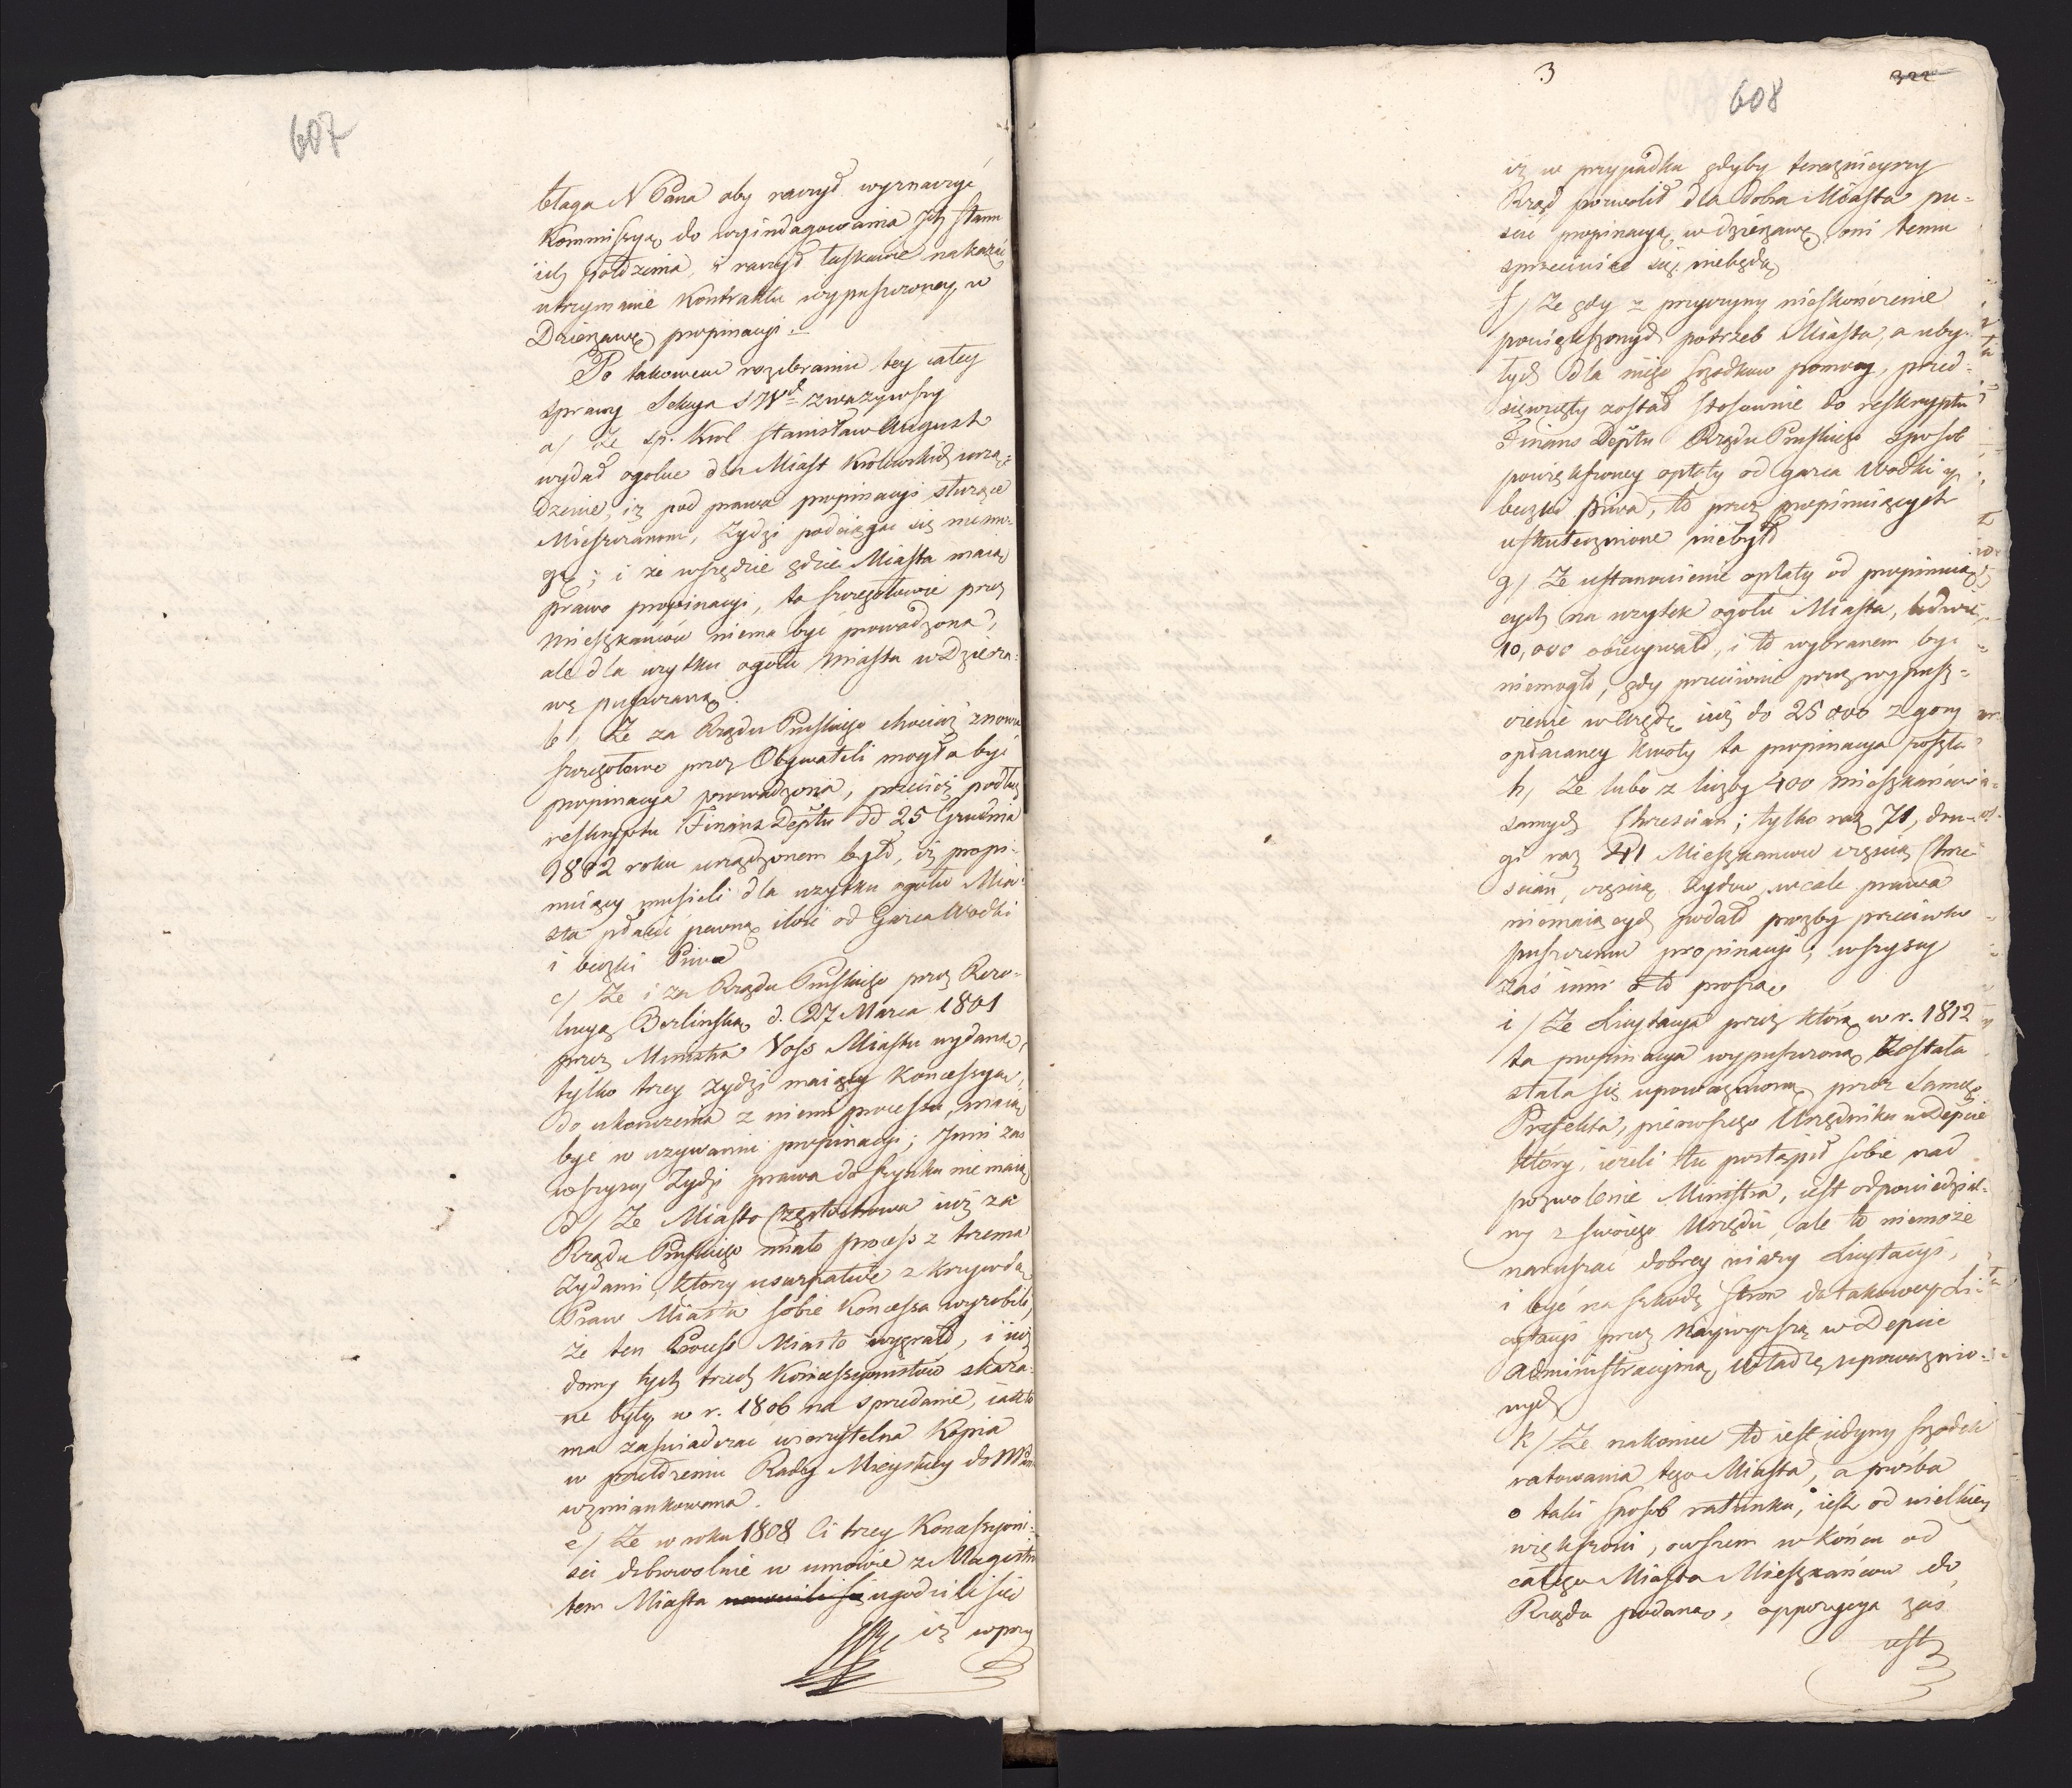 607
błaga N Pana aby raczył wyznaczyć
Kommissyą do wyindagowania Jch stanu
ich położenia, i raczył łaskawie nakazać
utrzymanie Kontraktu wypuszczoney w
Dzierzawę propinacyi.
Po takowem rozebraniu tey całey
sprawy Sekcya SWd zwazywszy
a/ Ze śp. Krol Stanisław August
wydał ogolne dla Miast Krolewskich urzą=
dzenie, iz pod prawa propinacyi słuzące
Mieszczanom, Zydzi podciągac się niemo=
gą; i ze wszędzie gdzie Miasta maią
prawo propinacyi, ta szczegołowie przez
Mieszkancow niema być prowadzona,
ale dla uzytku ogołu Miasta w Dzierza=
wę puszczaną.
b/ Ze za Rządu Pruskiego chociaz znowu
szczegołowo przez Obywateli mogła być
propinacya prowadzona, przeciez podług
reskryptu Finans Deptu dd 25 Grudnia
1802 roku urządzonem było, iz propi=
nuiący musieli dla uzytku ogołu Mia=
sta płacić pewną ilość od Garca Wodki
i beczki Piwa
c/ Ze i za Rządu Pruskiego przez Rezo=
lucyą Berlinską d. 27 Marca 1801
przez Ministra Voss Miastu wydaną,
tylko trzey Zydzi maiący Koncessye,
do ukonczenia z niemi processu, maią
być w uzywaniu propinacyi; Jnni zas
wszyscy Zydzi prawa do szynku nie maią
d/ Ze Miasto Częstochowa iuz za
Rządu Pruskiego miało process z trzema
Zydami, ktorzy usurpative z krzywdą
Praw Miasta sobie Koncessa wyrobili,
ze ten Process Miasto wygrało, i iuz
domy tych trzech Koncessyonistow skaza=
ne były w r. 1806 na sprzedanie, iak to
ma zaswiadczać wierzytelna Kopia
w przełozeniu Rady Mieyskiey do
wzmiankowana.
e/ Ze w roku 1808 Ci trzey Koncessyoni=
sci dobrowolnie w umowie z Magistra
tem Miasta ugodzili się
iz w przy
3
322
608
iz w przypadku gdyby teraznieyszy
Rząd pozwolił dla dobra Miasta pu=
scić propinacyą w dzierzawę, oni temu
sprzeciwiać się niebędą
f/ Ze gdy z przyczyny nieskończenie
powiększonych potrzeb Miasta, a uby=
łych dla niego srzodkow pomocy, przed=
sięwzięty został stosownie do reskryptu
Finans Deptu Rządu Pruskiego sposob
powiększoney opłaty od garca Wodki i
beczki piwa, to przez propinuiących
uskutecznione niebyło
g/ Ze ustanowienie opłaty od propinuią
cych na uzytek ogołu Miasta, ledwie
10,000 obiecywało, i to wybranem być
niemogło, gdy przeciwnie przez wypusz=
czenie w Arędę iuz do 25000 z gory
opłacaney kwoty ta propinacya poszła
h/ Ze lubo z liczby 400 Mieszkańcow
samych Chrescian; tylko raz 71, dru=
gi raz 41 Mieszkancow częścią Chrze
scian, częscią Zydow wcale prawa
niemaiących podało prozby przeciwko
puszczeniu propinacyi; wszyscy
zaś inni o to proszą.
i/ Ze Licytacya przez ktorą w r. 1812
ta propinacya wypuszczoną została
stała się upowaznioną przez samego
Prefekta, pierwszego Urzędnika w Depcie
ktory, iezeli tu postąpił sobie nad
pozwolenie Ministra, iest odpowiedzial=
ny z swoiego Urzędu, ale to niemoze
naruszać dobrey wiary Licytacyi,
i być na szkodę stron do takowey Li=
cytacyi przez Naywyzszą w Depcie
Administracyiną Władzę upowaznio=
nych
k/ Ze nakoniec to iest iedyny srzodek
ratowania tego Miasta, a prozba
o taki sposob ratunku, iest od wielkiey
większosci, owszem w końcu od
całego Miasta Mieszkańcow do
Rządu podana, oppozycya zas
iest